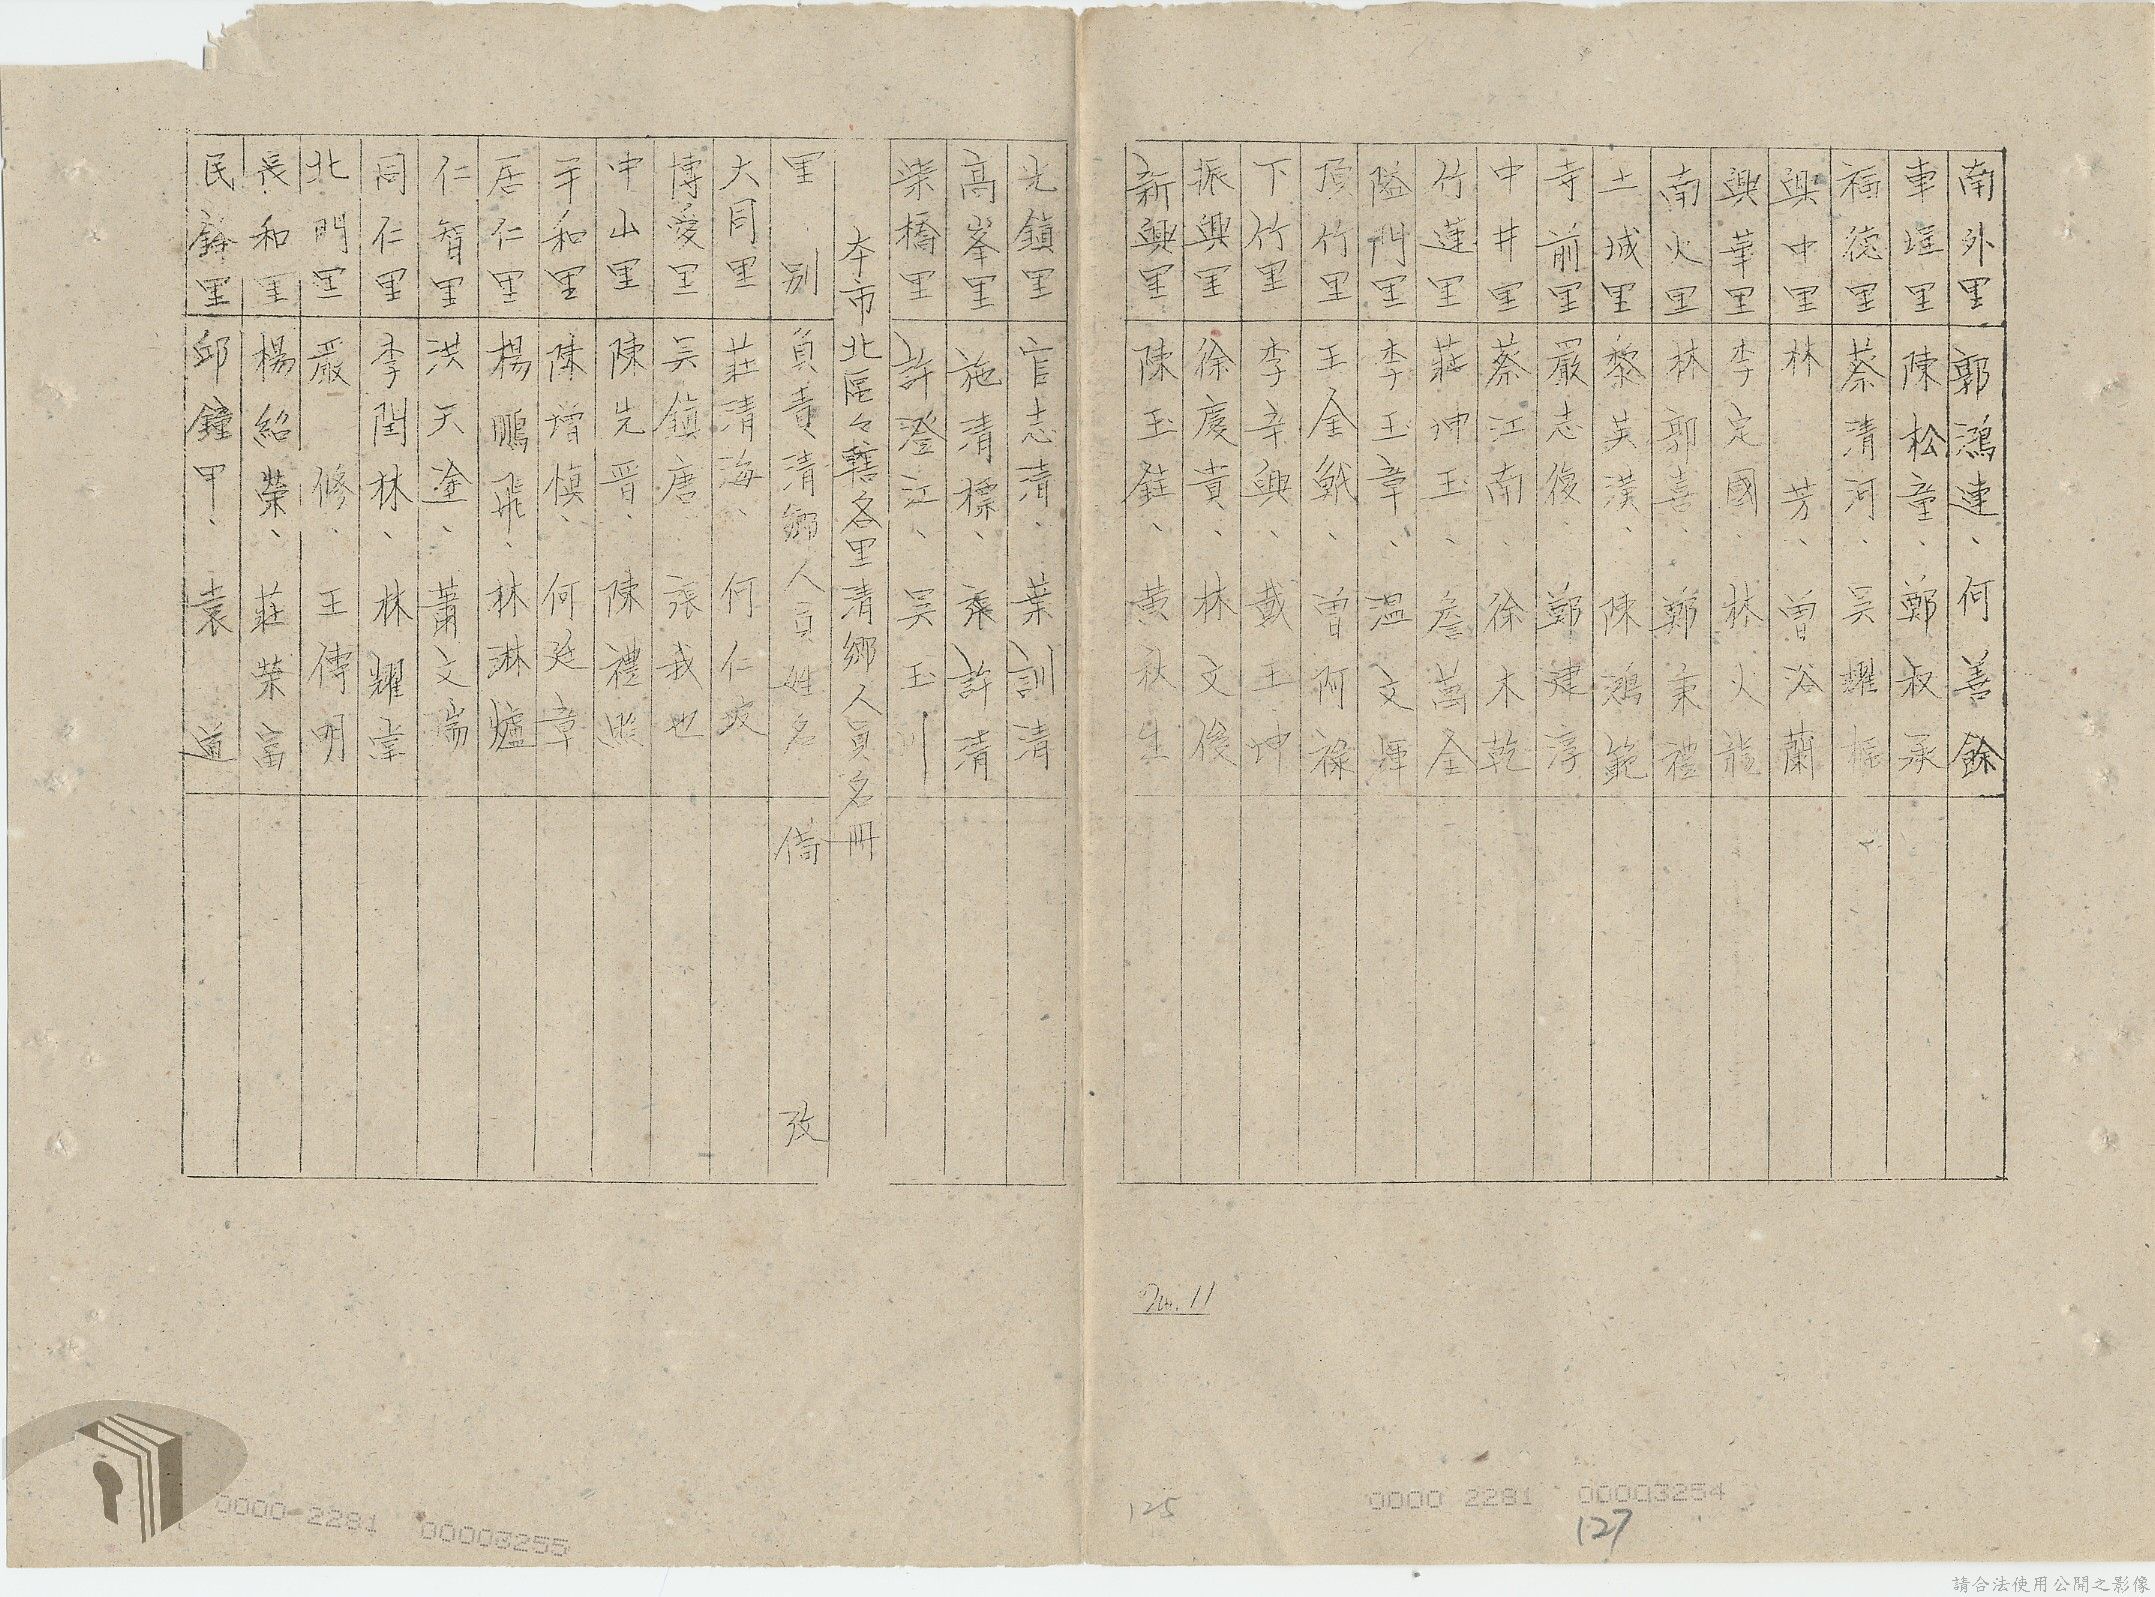 南外里 郭鴻連、何善餘
車埕里 陳松童、鄭叔承
福德里 蔡清河、吳耀振
興中里 林芳、曾浴蘭
興華里 李定國、林火龍
南火里 林郭喜、鄭秉禮
土城里 黎英漢、陳鴻範
寺前里 嚴志復、鄭建淳
中井里 蔡江南、徐木乾
竹蓮里 莊坤玉、詹萬全
隘門里 李玉章、溫文輝
頂竹里 王金戟、曾阿祿
下竹里 李辛興、戴玉坤
振興里 徐慶貴、林文俊
新興里 陳玉銓、黃秋生
光鎮里 官志清、葉訓清
高峯里 施清標、張許清
柴橋里 許澄江、吳玉川
本市北區々轄各里清鄉人員名冊
里別 負責清鄉人員姓名 備攷
大同里 莊清海、何仁坡
博愛里 吳鎮唐、張我也
中山里 陳先晋、陳禮熙
平和里 陳增慎、何廷章
居仁里 楊鵬飛、林淋爐
仁智里 洪天塗、蕭文瑞
同仁里 李閏林、林耀宗
北門里 嚴修、王傳明
長和里 楊紹榮、莊榮富
民餘里 邱鐘甲、袁道
No. 11
125
0000 2281 00003254
127
0000 2281 00003255
請合法使用公開之影像